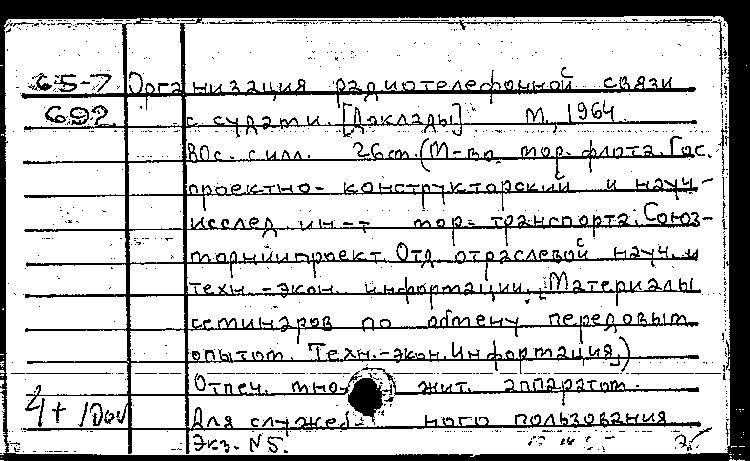 65-7 Организация радиотелефонной связи
692 с судами. [Доклады] М., 1964
80с. с илл. 26см. (М-во мор. флота. Гос.
проектно-конструкторский и науч-
исслед. ин-т мор. транспорта. Союз-
морниипроект. Отд. отраслевой науч. и
техн.-экон. информации. Материалы
семинаров по обмену передовым
опытом. Техн.-экон. информация.)
Отпеч. множит. аппаратом.
Для служебного пользования
Экз. N5.